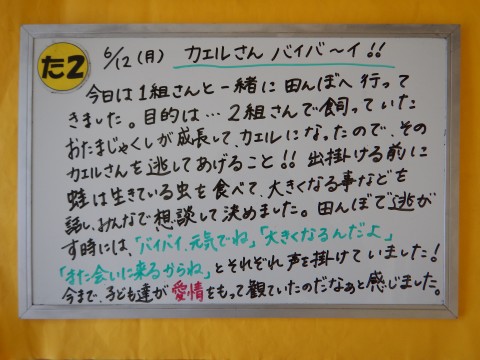 た2
6/12(月) カエルさん バイバ〜イ!!
今日は1組さんと一緒に田んぼへ行って
きました。目的は…2組さんで飼っていた
おたまじゃくしが成長して、カエルになったので、その
カエルさんを逃してあげること!! 出掛ける前に
蛙は生きている虫を食べて、大きくなる事などを
話し、みんなで想談して決めました。田んぼで逃が
す時には、「バイバイ、元気でね」「大きくなるんだよ」
「また会いに来るからね」とそれぞれ声を掛けていました!
今まで、子ども達が愛情をもって観ていたのだなぁと感じました。